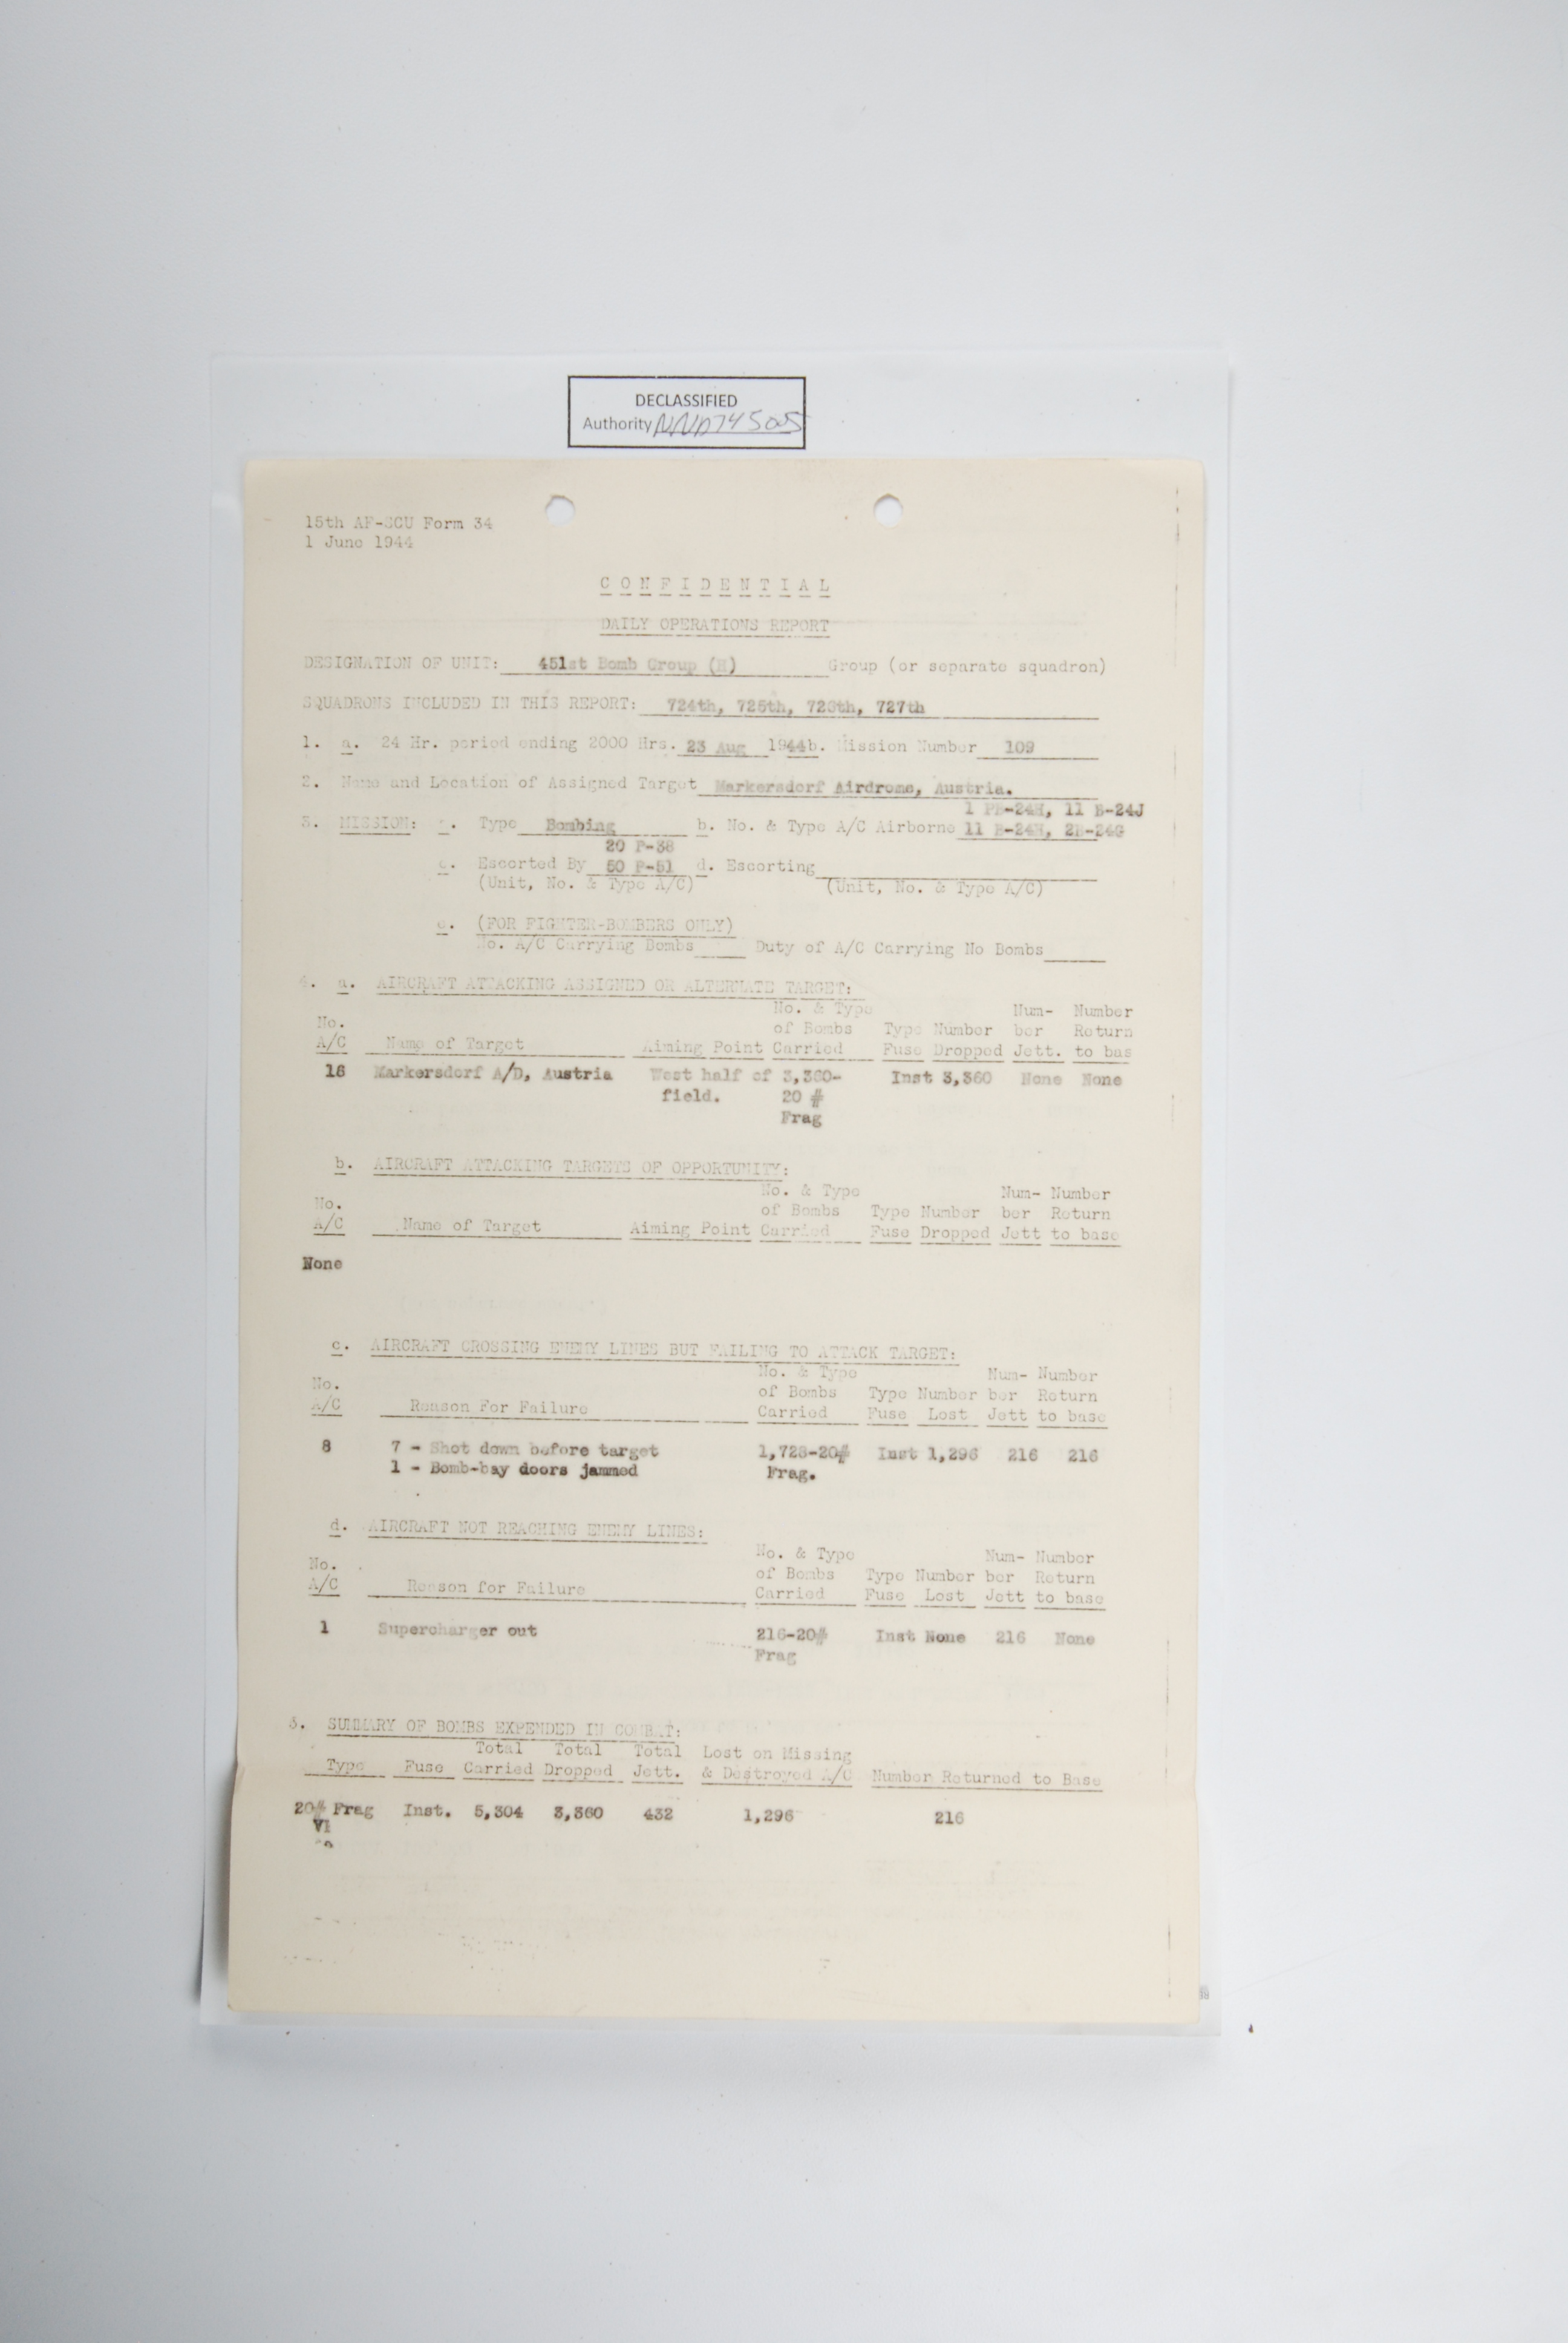 DECLASSIFIED
Authority NND745005
15th AF-SCU Form 34
1 June 1944
C O N F I D E N T I A L
DAILY OPERATIONS REPORT
DESIGNATION OF UNIT: 451st Bomb Group (H) Group (or separate squadron)
SQUADRONS INCLUDED IN THIS REPORT: 724th, 725th, 726th, 727th
1. a. 24 Hr. period ending 2000 Hrs. 23 Aug 1944 b. Mission Number 109
2. Name and Location of Assigned Target Markersdorf Airdrome, Austria.
1 PB-24H, 11 B-24J
3. MISSION: a. Type Bombing b. No. & Type A/C Airborne 11 B-24H, 2B-24G
20 P-38
c. Escorted By 50 P-51 d. Escorting
(Unit, No. & Type A/C) (Unit, No. & Type A/C)
e. (FOR FIGHTER-BOMBERS ONLY)
No. A/C Carrying Bombs Duty of A/C Carrying No Bombs
4. a. AIRCRAFT ATTACKING ASSIGNED OR ALTERNATE TARGET:
No. & Type Num- Number
No. of Bombs Type Number ber Return
A/C Name of Target Aiming Point Carried Fuse Dropped Jett. to bas
16 Markersdorf A/D, Austria West half of 3,360- Inst 3,360 None None
field. 20 #
Frag
b. AIRCRAFT ATTACKING TARGETS OF OPPORTUNITY:
No. & Type Num- Number
No. of Bombs Type Number ber Return
A/C Name of Target Aiming Point Carried Fuse Dropped Jett to base
None
c. AIRCRAFT CROSSING ENEMY LINES BUT FAILING TO ATTACK TARGET:
No. & Type Num- Number
No. of Bombs Type Number ber Return
A/C Reason For Failure Carried Fuse Lost Jett to base
8 7 - Shot down before target 1,728-20# Inst 1,296 216 216
1 - Bomb-bay doors jammed Frag.
d. AIRCRAFT NOT REACHING ENEMY LINES:
No. & Type Num- Number
No. of Bombs Type Number ber Return
A/C Reason for Failure Carried Fuse Lost Jett to base
1 Supercharger out 216-20# Inst None 216 None
Frag
5. SUMMARY OF BOMBS EXPENDED IN COMBAT:
Total Total Total Lost on Missing
Type Fuse Carried Dropped Jett. & Destroyed A/C Number Returned to Base
20# Frag Inst. 5,304 3,360 432 1,296 216
VI